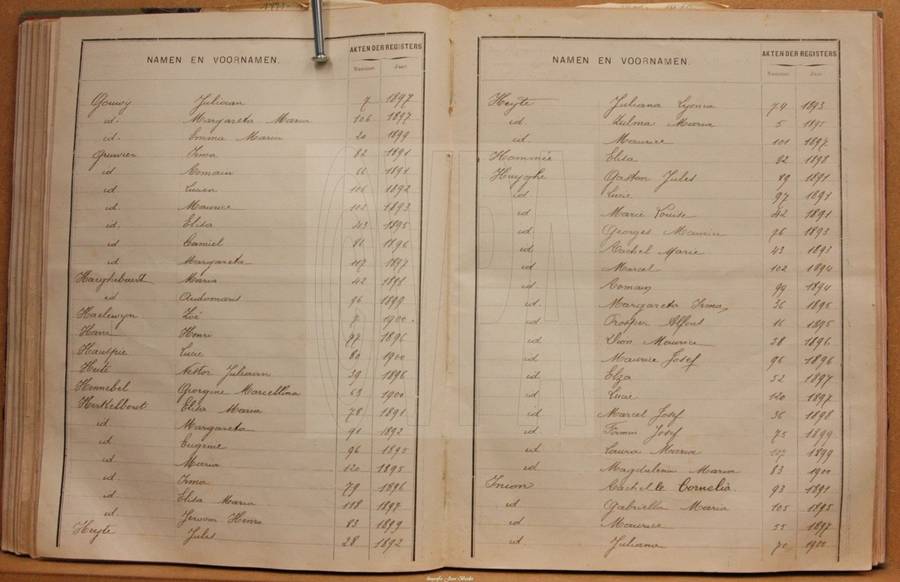 NAMEN EN VOORNAMEN.
AKTEN DER REGISTERS
Nummer. Jaar.
Gouwy Juliaan 7 1897
id. Margareta Maria 106 1897
id. Emma Maria 20 1899
Gruwier Irma 82 1891
id Romain 1891
id Lucien 1892
id. Maurice 1893
id. Elisa 43 1895
id Camiel 86 1896
id Margareta 117 1897
Maria 42 1896
id 96 1899
Haelewyn Zoë 7 1900
Hane Henri 97 1896
Hautspie Lucie 80 1900
Heite Nestor Juliaan 39 1896
Hennebel Georgine Marcellina 63 1900
Herkelbout Elisa Maria 78 1891
id Margareta 91 1892
id Eugenie 96 1895
id Maria 120 1895
id Irma 79 1896
id Elisa Maria 118 1897
id. Jeroom Henri 83 1899
Heyte Jules 28 1892
NAMEN EN VOORNAMEN.
AKTEN DER REGISTERS
Nummer. Jaar.
Heyte Juliana 74 1893
id Zulma Maria 5 1895
id. Maurice 101 1897
Hommée Elisa 82 1898
Huyghe Gaston Jules 29 1891
id Lucie 97 1891
id Marie Louise 42 1891
id Georges Maurice 76 1893
id Rachel Marie 43 1893
id Marcel 102 1894
id Romain 99 1894
id Margareta Irma 36 1895
id Prosper Alfons 16 1895
id Leon Maurice 28 1896
id Maurice Josef 96 1896
id Elza 52 1897
id Lucie 120 1897
id Marcel Josef 36 1898
id Firmin Josef 75 1899
id Laura Maria 107 1899
id Magdalena Maria 83 1900
Inion Rachelle Cornelia. 93 1891
id Gabriella Maria 105 1895
id Maurice 55 1897
id Juliana 70 1900